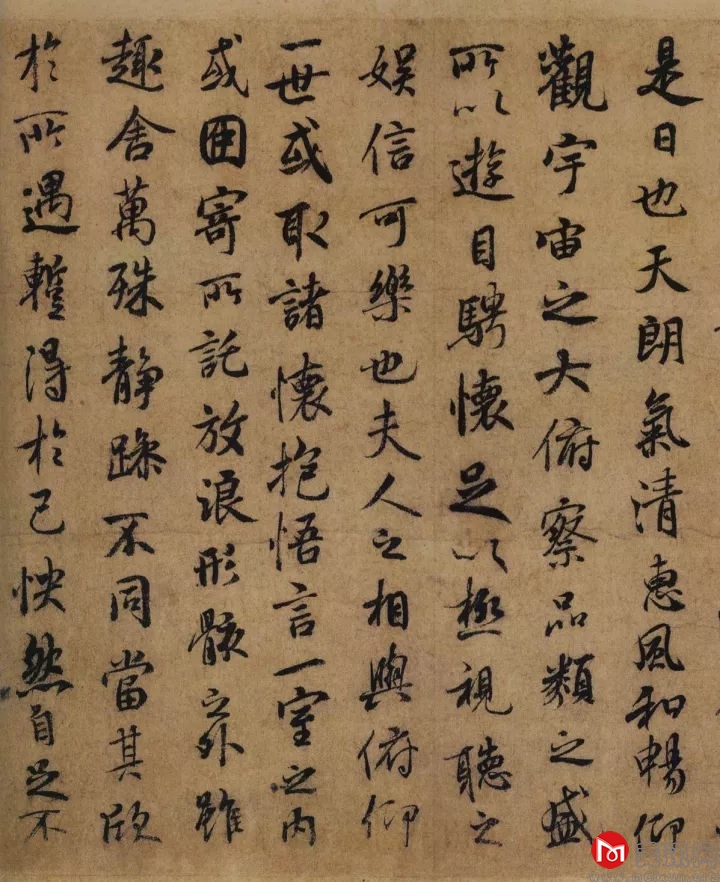 是日也天朗氣清惠風和暢仰
觀宇宙之大俯察品類之盛
所以遊目騁懷足以極視聽之
娛信可樂也夫人之相與俯仰
一世或取諸懷抱悟言一室之內
或因寄所託放浪形骸之外雖
趣舍萬殊靜躁不同當其欣
於所遇暫得於己怏然自足不